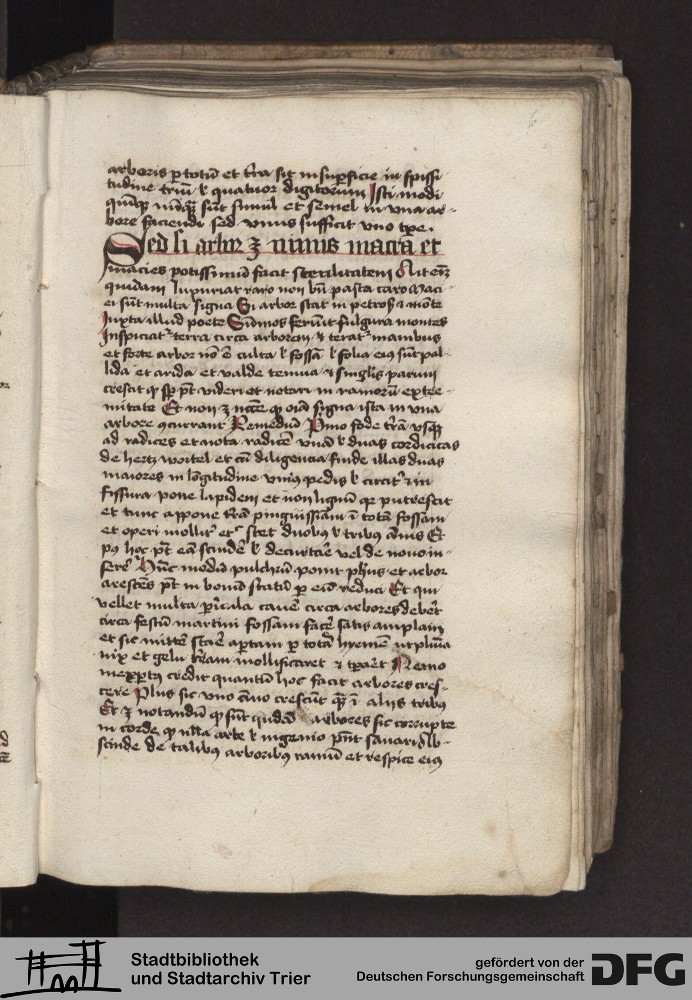 6
arboris p totū et t̄ra sit in suꝑficie in spissi
tudine triū ł quatuor digitorum Isti modi
sūt simul et semel in vna ar-
bore faciendi sed vnus sufficit vno tꝑe.
Sed si arbor ʒ nimis macra et
macies potissimū facit sterilitatem
quidam luxuriat raro non bn̄ pasta caro Maci
ei sūnt multa signa Si arbor stat in petrosis mōte
Iuxta illud poete Sūmos feriūt fulgura montes
Inspiciat᷑ terra circa arborem ⁊ terat᷑ manibus
et forte arbor nō ē culta ł fossa ł folia eiꝰ sūt pal-
lida et arida et valde tenuia ⁊ singlis parum
crescat qᷓ sꝑ pn̄t videri et notari in ramorū extre-
mitate Et non ʒ ꝙ oīa signa ista in vna
arbore ꝯcurrant Remediū Pͥmo fode t̄rā vsqꝫ
ad radices et nota radicē vnā ł duas cordicitas
de hertz wortel et cū diligencia finde illas duas
maiores in lōgitudine vniꝰ pedis ł circit᷑ ⁊ in
fissura pone lapidem et non lignū qꝛ putrescit
et tunc appone t̄rā pinguissiām ī totā fossam
et operi mollit᷑ et stet duobꝰ ł tribꝰ ānis Et
pꝰ hoc pn̄t eā scindē ł decurtare vel de nouo in-
serē Hūc modū pulchrū ponit plīus et arbor
arescēs pn̄t in bonū statū ꝑ eū reduci Et qui
vellet multa ꝑicula cauē circa arbores deberet
circa festū martini fossam facē satis amplam
et sic mittē stare apertam ꝑ totā hyemem vt pluuia
nix et gelu t̄ram mollificaret ⁊ Nemo
inexꝑtꝰ credit quantū hoc facit arbores cres-
cere Plus sic vno āno crescūt qᷓ ī aliis tribꝰ
Et ʒ notandū ꝙ sūt quedā arbores sic corrupte
in corde ꝙ nlla arte ł ingenio pn̄t sanari
scinde de talibꝰ arboribꝰ ramū et respice eiꝰ
Stadtbibliothek
und Stadtarchiv Trier
gefördert von der
Deutschen Forschungsgemeinschaft
DFG